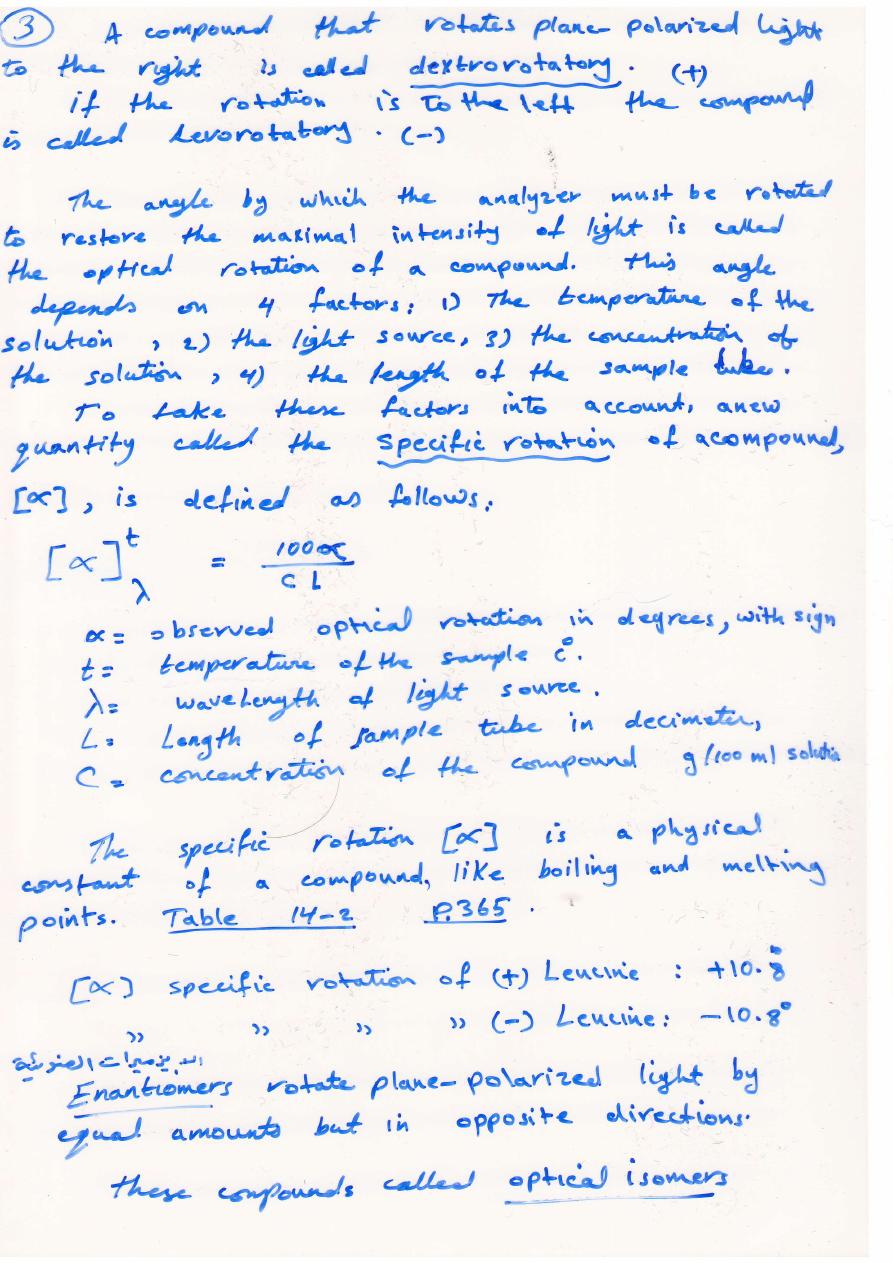 3 A compound that rotates plane-polarized light
to the right is called dextrorotatory. (+)
if the rotation is To the left the compound
is called Levorotatory. (-)
The angle by which the analyzer must be rotated
to restore the maximal intensity of light is called
the optical rotation of a compound. this angle
depends on 4 factors: 1) The temperature of the
solution, 2) the light source, 3) the concentration of
the solution, 4) the length of the sample tube.
To take these factors into account, a new
quantity called the Specific rotation of a compound,
[α], is defined as follows.
[α]^t_λ = 100α / C L
α = observed optical rotation in degrees, with sign
t = temperature of the sample c°.
λ = wave Length of light source.
L = Length of sample tube in decimeter,
C = concentration of the compound g/100 ml solution
The specific rotation [α] is a physical
constant of a compound, like boiling and melting
points. Table 14-2 P.365.
[α] specific rotation of (+) Leucine : +10.8°
" " " " (-) Leucine : -10.8°
Enantiomers rotate plane-polarized light by
equal amounts but in opposite directions.
these compounds called optical isomers